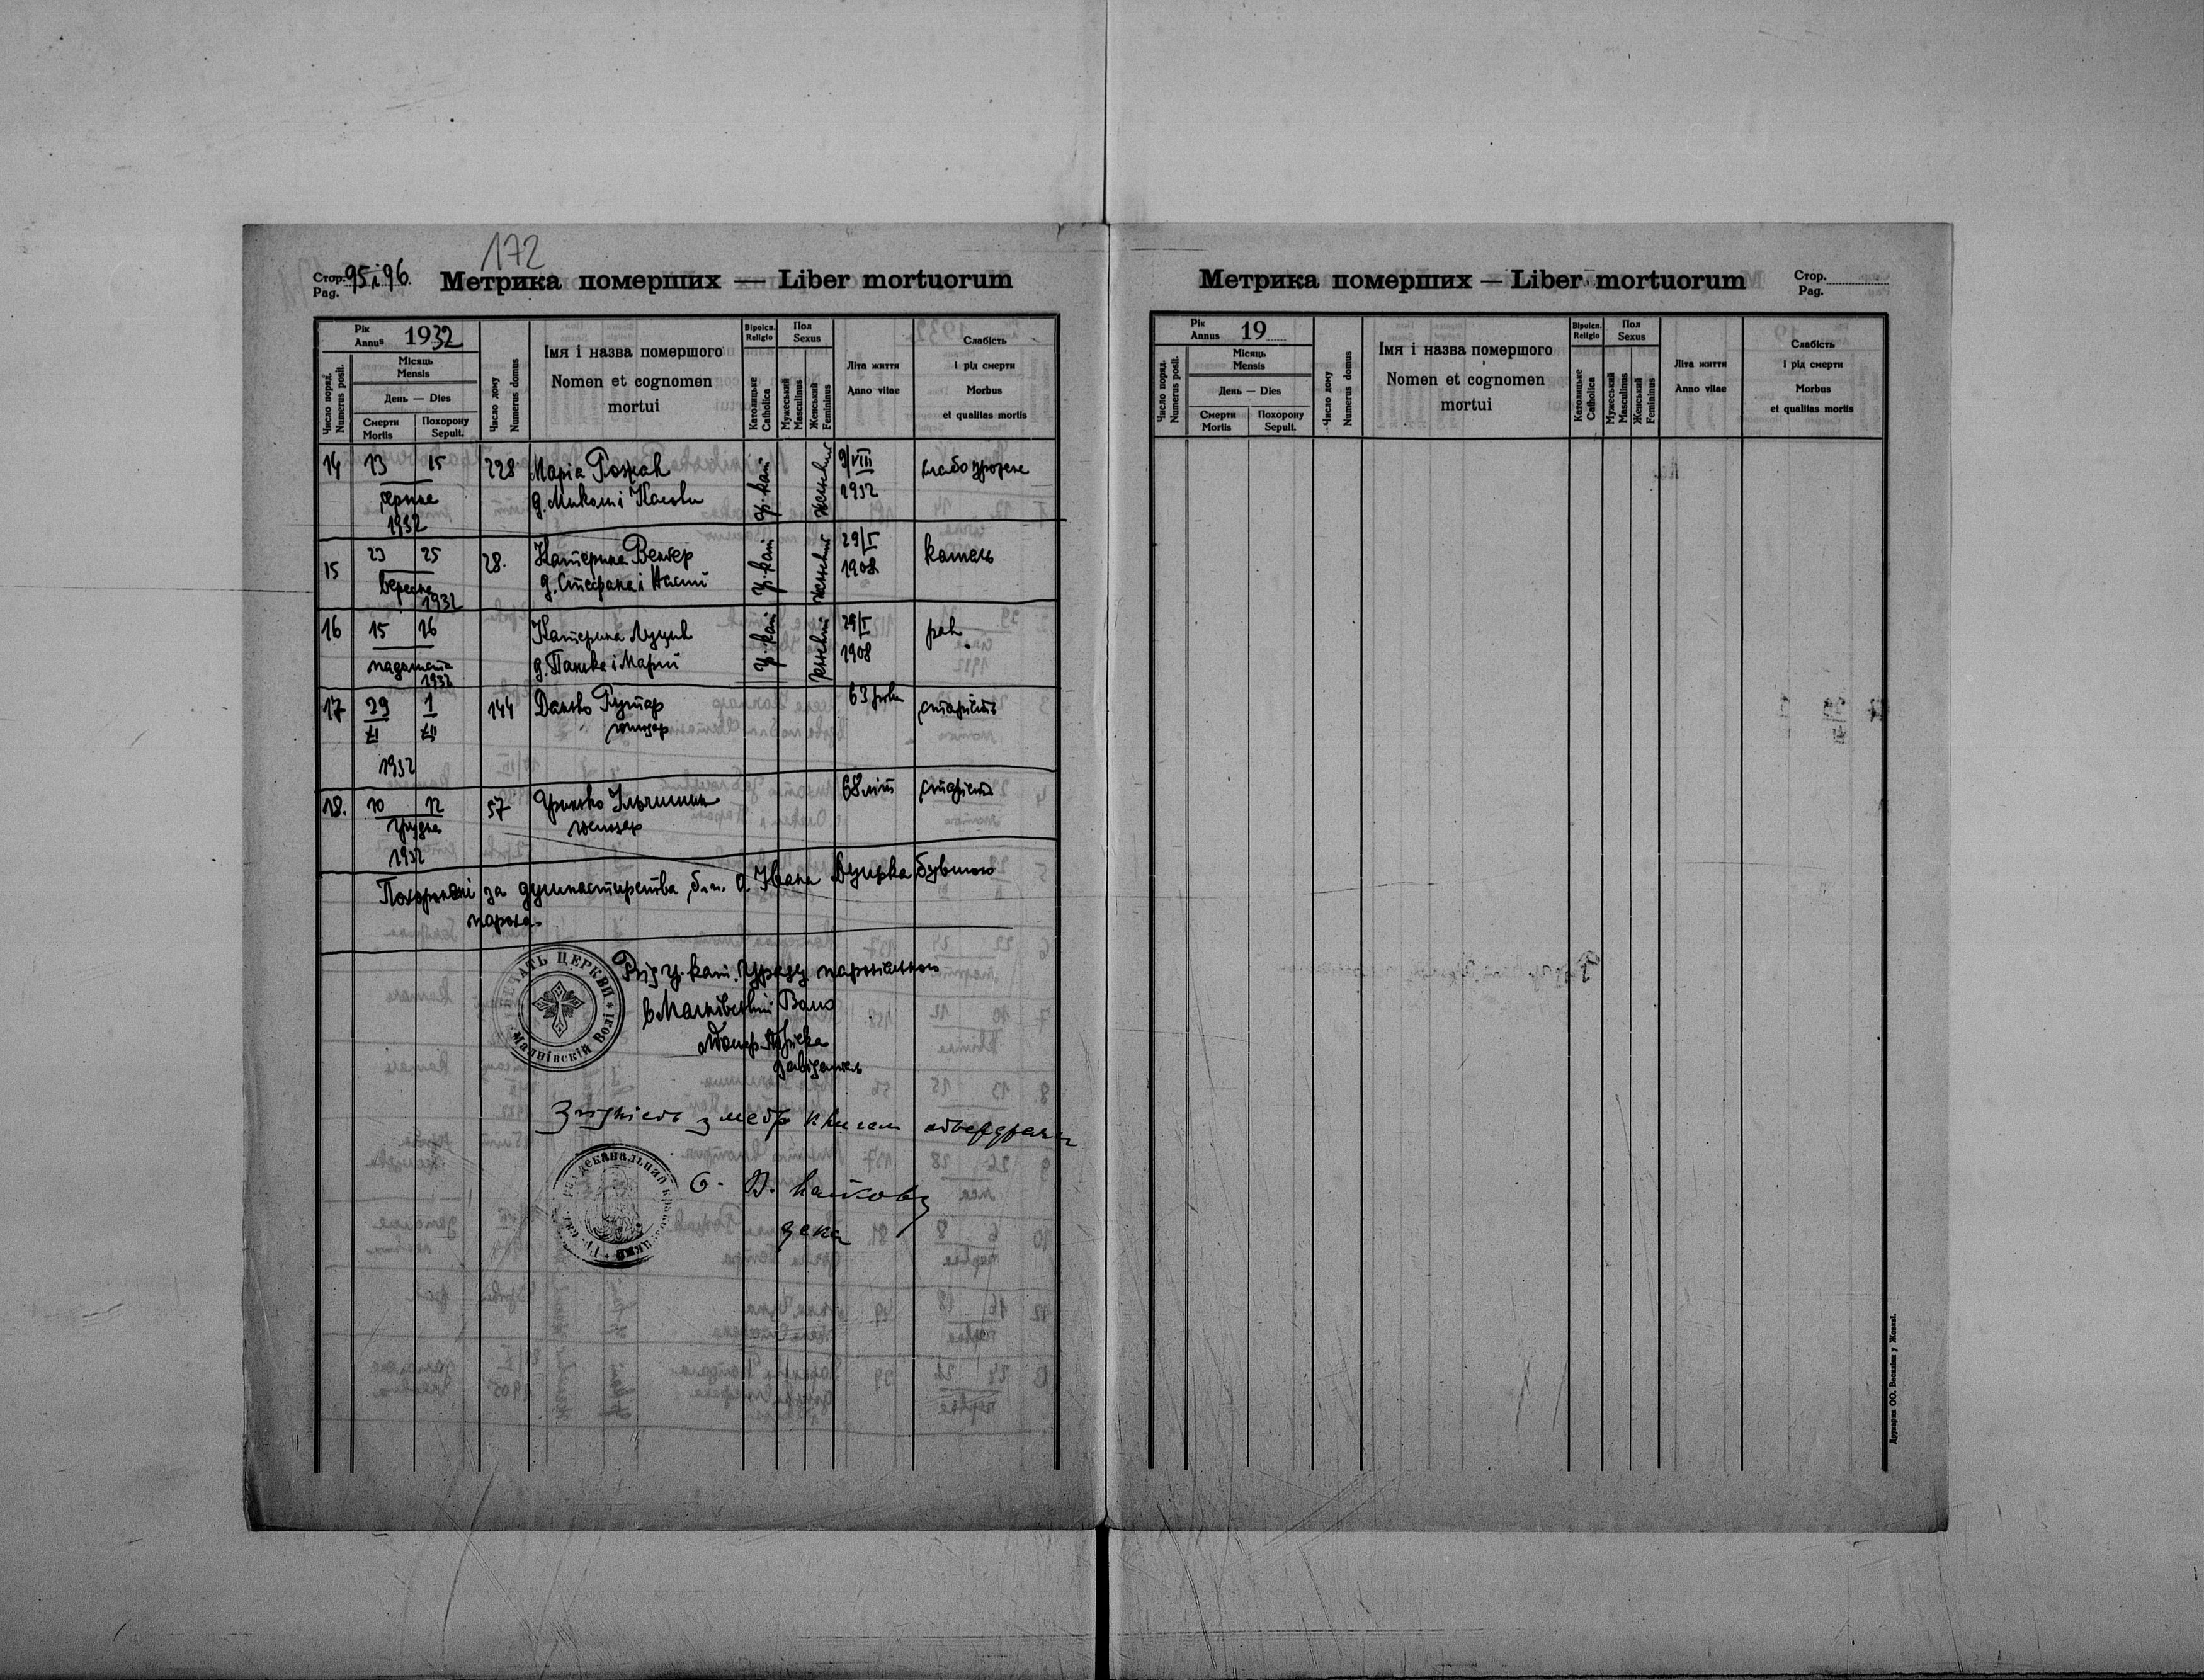 172
Стор. 95 і 96.
Pag.
Метрика померших — Liber mortuorum
Рік
Annus 1932
Число поряд.
Numerus posit.
Місяць
Mensis
День — Dies
Смерти
Mortis
Похорону
Sepult.
Число дому
Numerus domus
Імя і назва помершого
Nomen et cognomen
mortui
Віроісп.
Religio
Католицьке
Catholica
Пол
Sexus
Мужеський
Masculinus
Женський
Femininus
Літа життя
Anno vitae
Слабість
і рід смерти
Morbus
et qualitas mortis
14 13 15 228 Марія Рожак гр. кат женський 9/VIII слабо
серпня д. Миколи і 1932
1932
15 23 25 28. Катерина гр. кат женський 29/I кашель
вересня д. Стефана і Насті 1908
1932
16 15 16 Катерина Луцик гр. кат женський 29/I рак
падолиста д. Панька і Марії 1908
1932
17 29 1 144 Данько 63 роки старість
XI XII
1932
18. 10 12 57 Гринько Ільчишин 68 літ старість
грудня
1932
Похоронені за душпастирства бл. п. о. Івана бувшого
пароха.
Від гр. кат. Уряду парохіяльного
в Малнівській Волі
завідатель
ПЕЧАТЬ ЦЕРКВИ * Малнівскій Волі *
Згідність з метр книгам
О. В.
декан
Метрика померших — Liber mortuorum
Стор.
Pag.
Рік
Annus 19
Число поряд.
Numerus posit.
Місяць
Mensis
День — Dies
Смерти
Mortis
Похорону
Sepult.
Число дому
Numerus domus
Імя і назва помершого
Nomen et cognomen
mortui
Віроісп.
Religio
Католицьке
Catholica
Пол
Sexus
Мужеський
Masculinus
Женський
Femininus
Літа життя
Anno vitae
Слабість
і рід смерти
Morbus
et qualitas mortis
Друкарня ОО. Василіян у Жовкві.